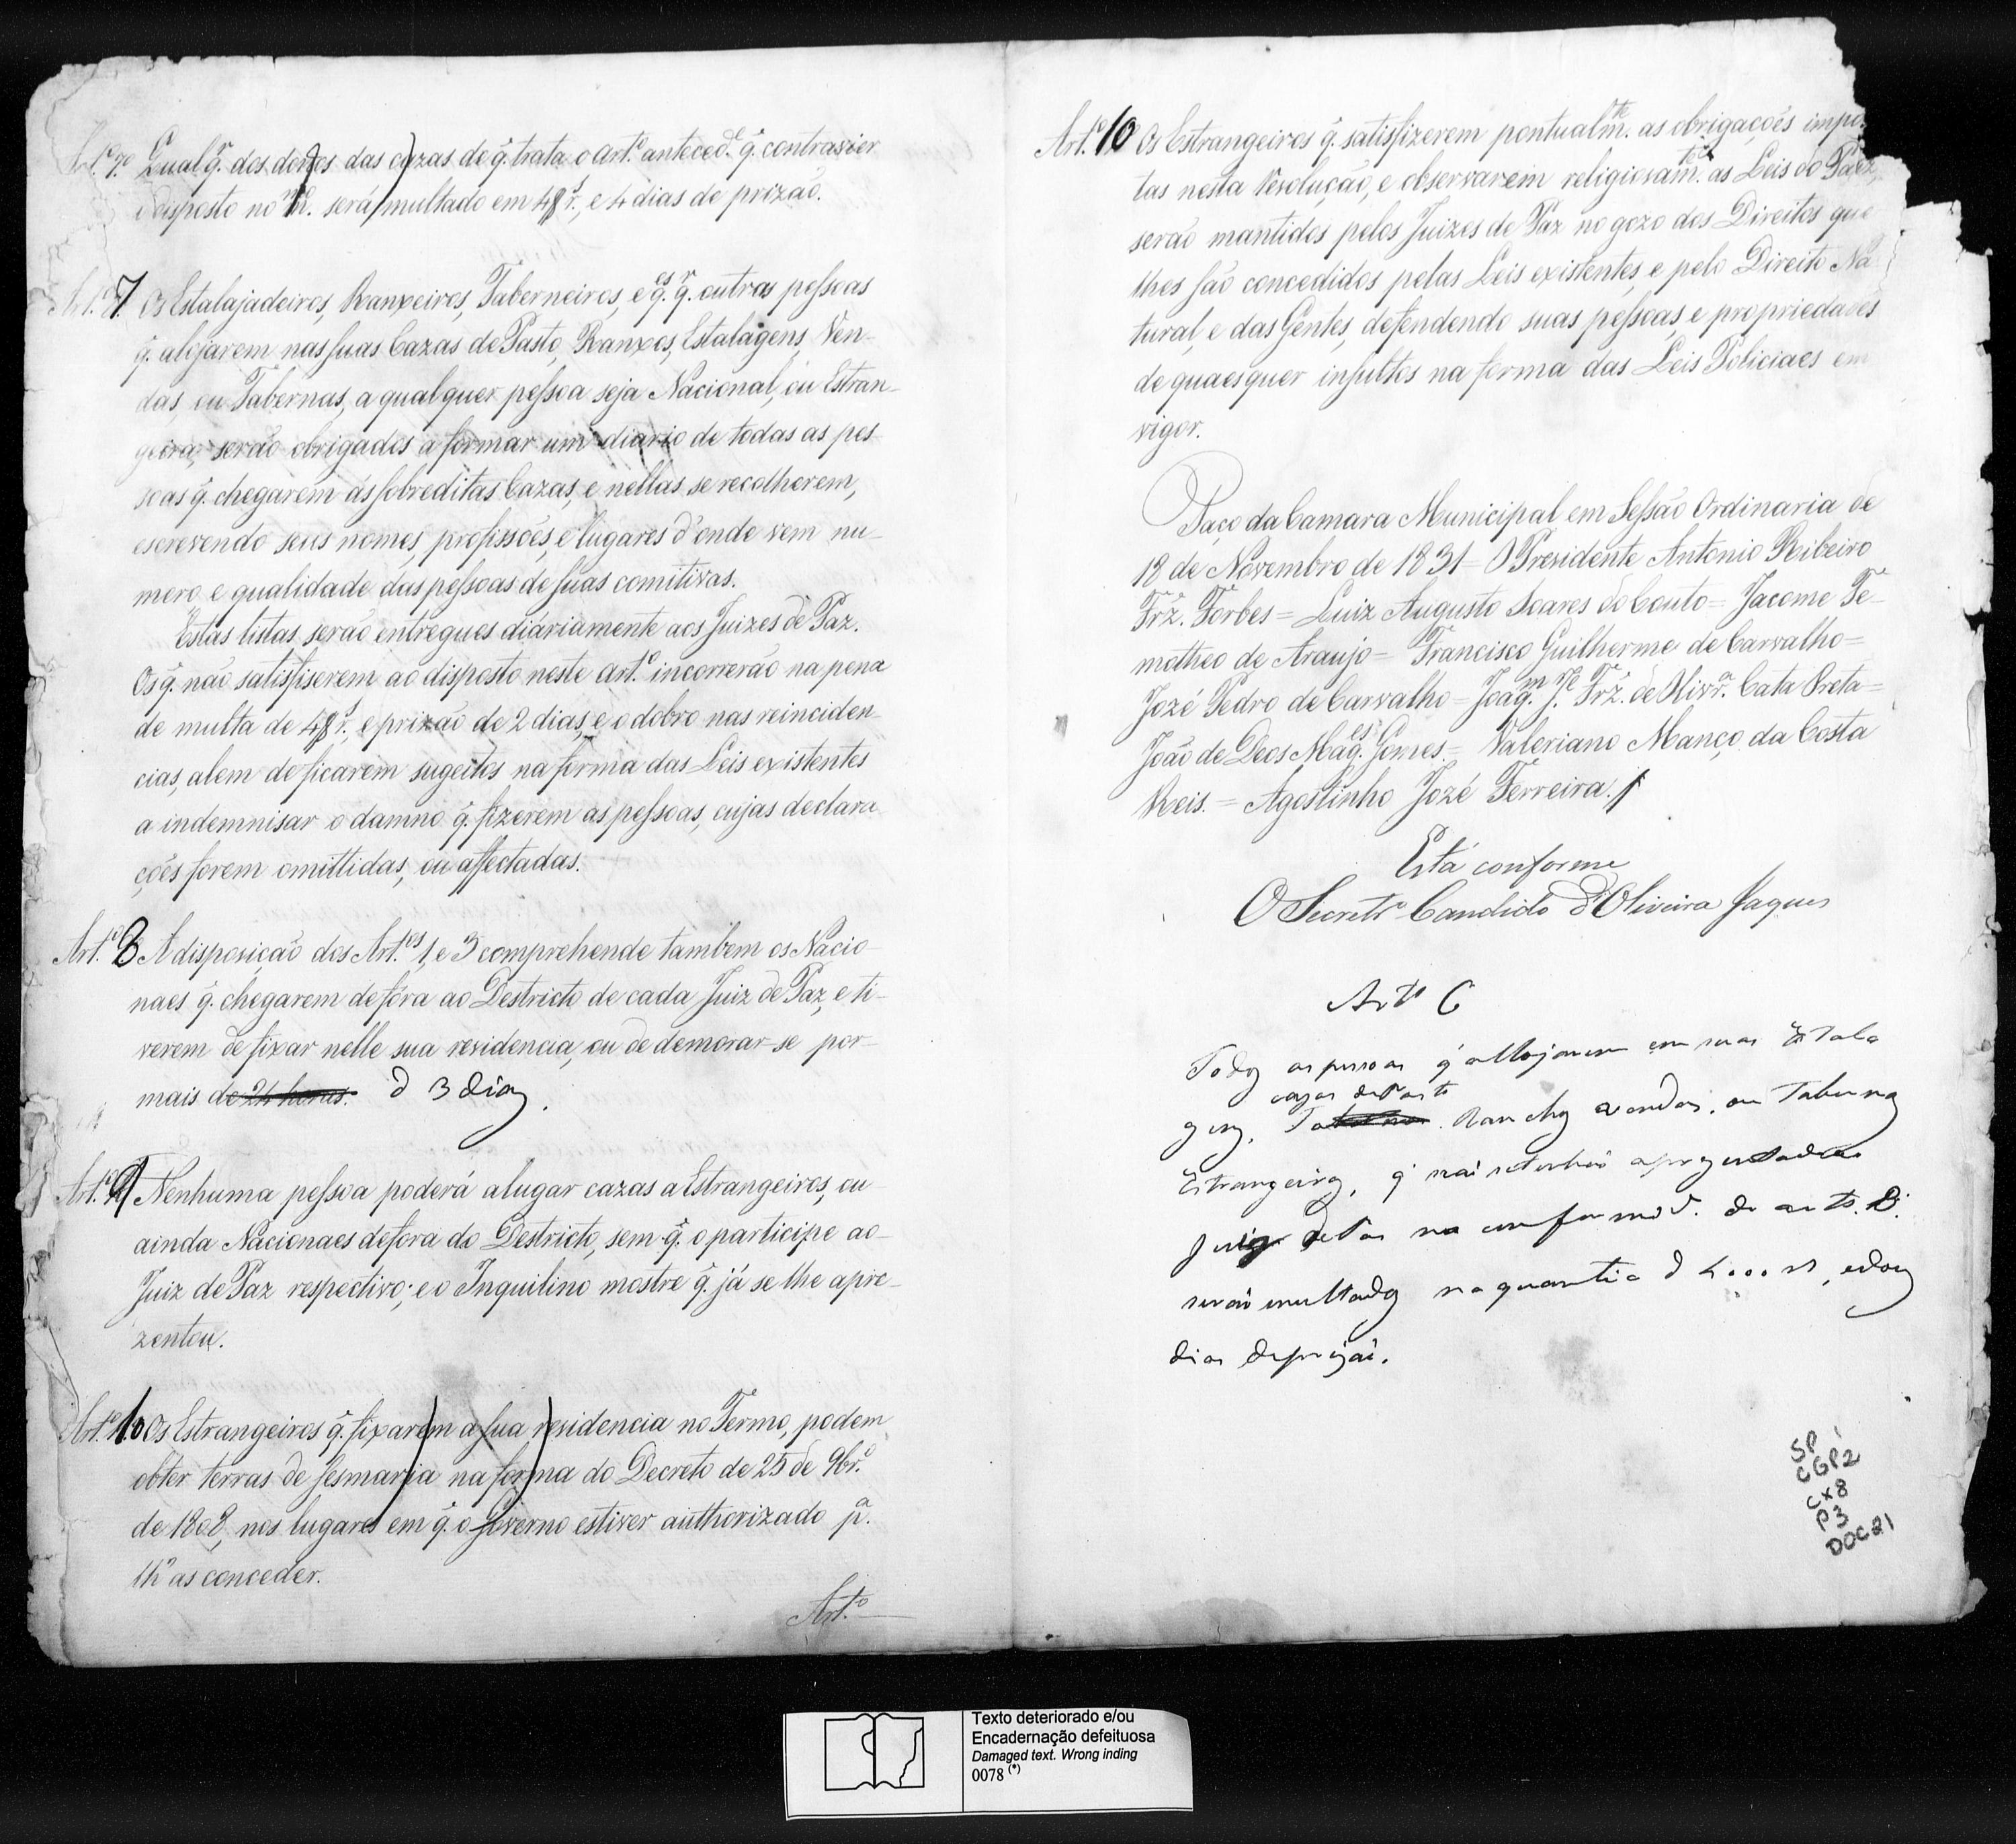 Art.º 7º Qual q.r dos donos das cazas de q̃ trata o Art.º anteced.e q̃. contravier
o disposto no m.mo será multado em 4$ r.s, e 4 dias de prizão.
Art.º 7. Os Estalajadeiros, Ranxeiros, Taberneiros, e q.es q.r outras pessoas
q̃. alojarem nas suas Cazas de Pasto, Ranxos, Estalagens, Ven-
das, ou Tabernas, a qualquer pessoa seja Nacional, ou Estran-
geira, serão obrigados a formar um diario de todas as pes
soas q̃. chegarem ás sobreditas Cazas, e nellas se recolherem,
escrevendo seus nomes, profissões, e lugares d'onde vem nu-
mero e qualidade das pessoas de suas comitivas.
Estas listas serão entregues diáriamente aos Juizes de Paz.
Os q̃. não satisfiserem ao disposto neste Art.º incorrerão na pena
de multa de 4$ r.s, e prizão de 2 dias, e o dobro nas reinciden-
cias, alem de ficarem sugeitos na forma das Leis existentes
a indemnisar o damno q̃. fizerem as pessoas, cujas declara
ções forem omittidas, ou affectadas.
Art.º 8 A disposição dos Art.os 1, e 3 comprehende tambem os Nacio-
naes q̃. chegarem de fóra ao Destricto de cada Juiz de Paz, e ti-
verem de fixar nelle sua residencia, ou de demorar-se por-
mais de 24 horas. d 3 dias.
Art.º 9 Nenhuma pessoa poderá alugar cazas a Estrangeiros, ou-
ainda Nacionaes de fora do Destricto, sem q̃. o participe ao-
Juiz de Paz respectivo; e o Inquilino mostre q̃. já se lhe apre-
zentou.
Art.º 10 Os Estrangeiros q̃. fixarem a sua residencia no Termo, podem
obter terras de sesmaria na forma do Decreto de 25 de 9br.º
de 1808, nos lugares em q̃. o Governo estiver authorizado p.a
lh'as conceder.
Art.º
Art.º 10 Os Estrangeiros q̃. satisfizerem pontualm.te as obrigações impos
tas nesta Resolução, e observarem religiosam.te as Leis do Paez,
serão mantidos pelos Juizes de Paz no gozo dos Direitos que
lhes são concedidos pelas Leis existentes, e pelo Direito Na
tural, e das Gentes, defendendo suas pessoas, e propriedades
de quaesquer insultos na forma das Leis Policiaes em
vigor.
Paço da Camara Municipal em Sessão Ordinaria de
18 de Novembro de 1831 = O Presidente Antonio Ribeiro
Frz. Forbes = Luiz Augusto Soares do Couto = Jacome Te-
motheo de Araujo = Francisco Guilherme de Carvalho =
Jozé Pedro de Carvalho = Joaq.m J.e Frz. de Olivr.a Cata Preta =
João de Deos Mag.es Gomes = Valeriano Manço da Costa
Reis. = Agostinho Jozé Ferreira.
Está conforme
O Secretr.º Candido d'Oliveira Jaques
Art.º 6
Todos as pessoas q̃ allojarem em suas Estala
cazas de Pasto
gens, Ranchos vendas, ou Tabernas
Estrangeiros, q̃ não se tenhão aprezentado ao
Juiz de Paz na conformid.e do art.
serão multados na quantia d 4000 rs, e dous
dias de prizão.
SP 1
CGP2
CX8
P3
DOC21
Texto deteriorado e/ou
Encadernação defeituosa
Damaged text. Wrong inding
0078 (*)